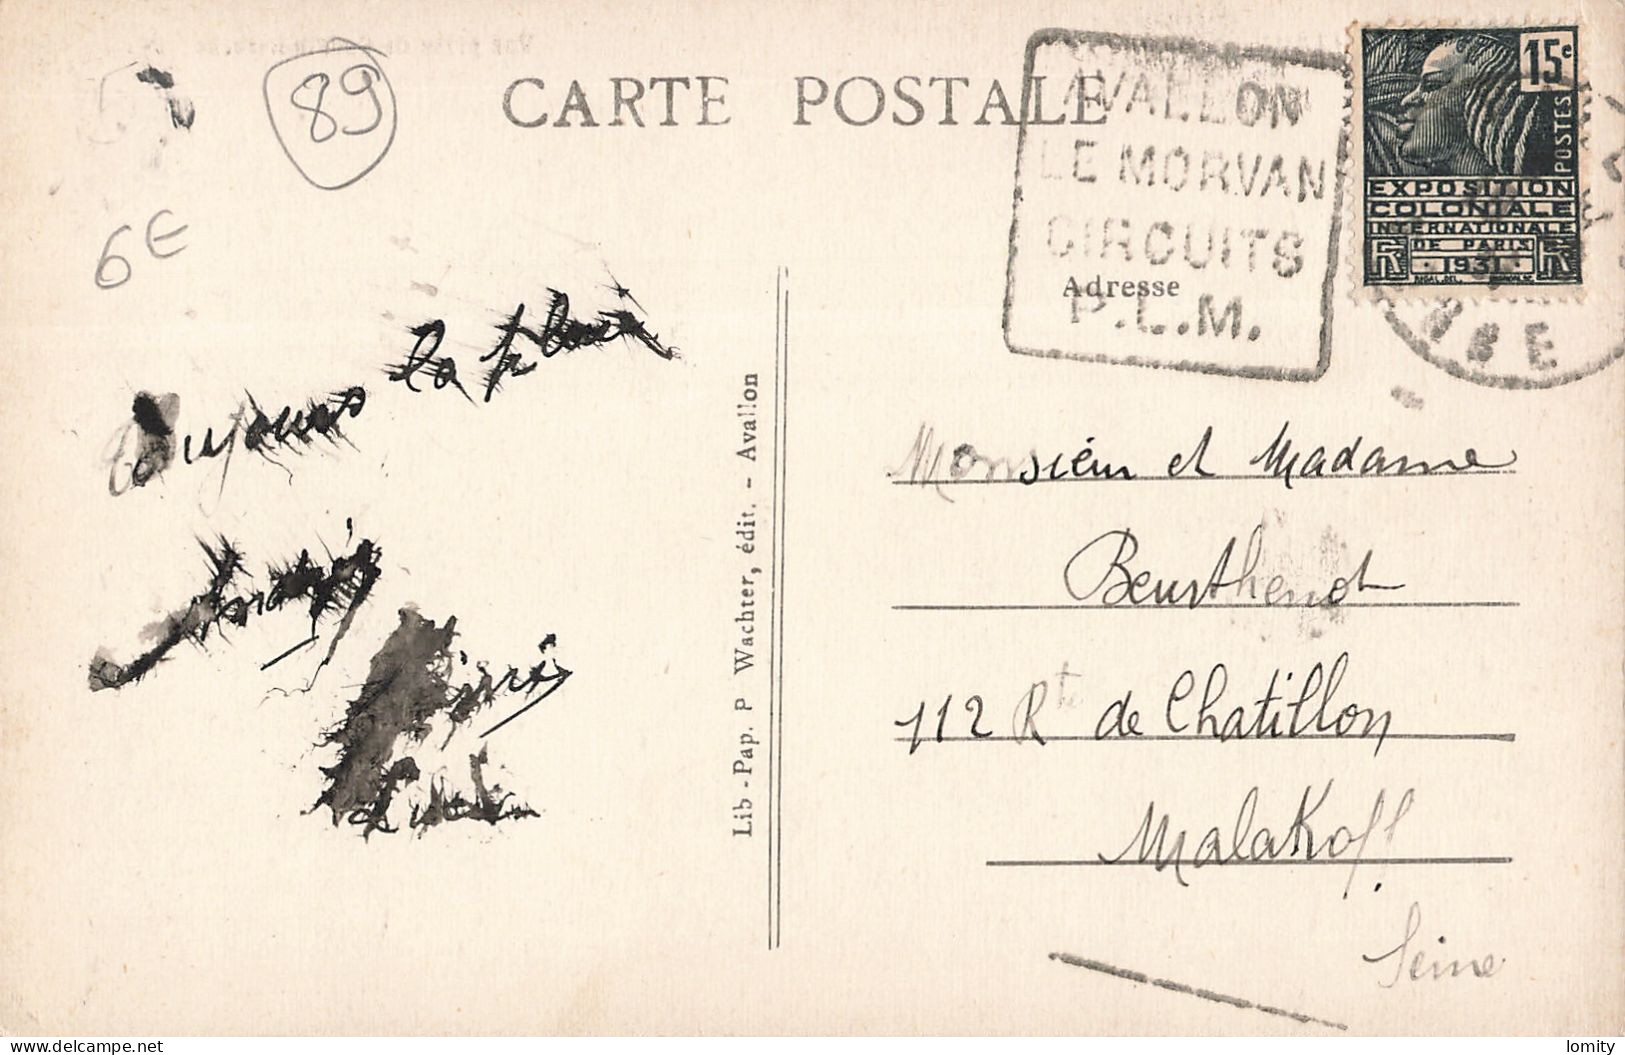 89
6E
CARTE POSTALE
AVALLON
LE MORVAN
CIRCUITS
P.L.M.
15c
POSTES
EXPOSITION
COLONIALE
INTERNATIONALE
DE PARIS
1931
RF
Adresse
toujours la pluie
Lib-Pap. P Wachter, édit. - Avallon
Monsieur et Madame
Beurthenot
112 Rte de Chatillon
Malakoff
Seine
delcampe.net
lomity